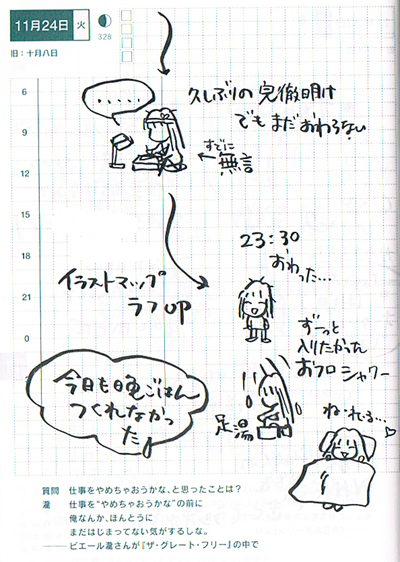 11月24日 火
328
旧：十月八日
6
9
12
15
18
21
0
3
・・・・・
久しぶりの完徹明け
でもまだおわらない
←すでに
無言
23:30
おわった…
イラストマップ
ラフup
ずーっと
入りたかった
おフロシャワー
足湯
今日も晩ごはん
つくれなかっ
た
ね・れる…
質問　仕事をやめちゃおうかな、と思ったことは？
瀧　仕事を“やめちゃおうかな”の前に
俺なんか、ほんとうに
まだはじまってない気がするしな。
――ピエール瀧さんが『ザ・グレート・フリー』の中で